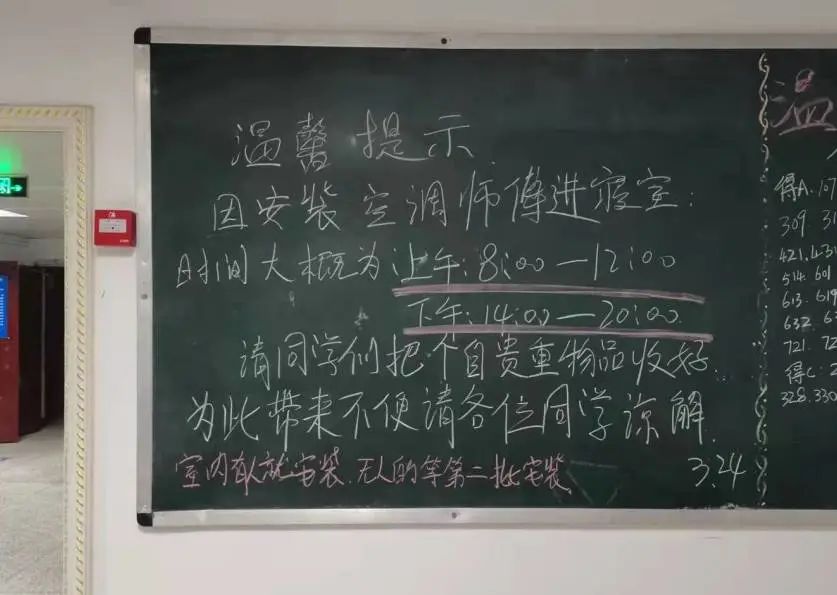 温馨提示
因安装空调师傅进寝室:
时间大概为上午:8:00—12:00
下午:14:00—20:00
请同学们把个自贵重物品收好.
为此带来不便请各位同学谅解.
室内有人就安装.无人的等第二批安装
3.24
温
得A:107
309. 31
514. 601
613. 619
632. 63
721. 72
得C: 2
328.330